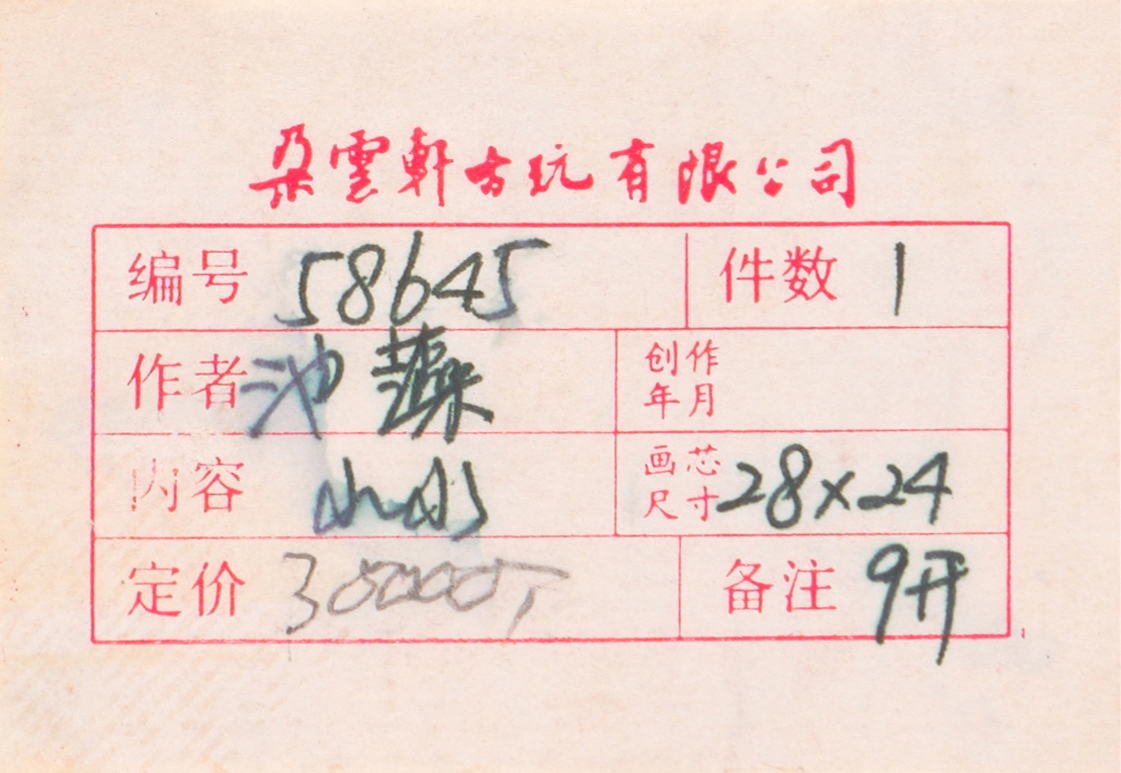 朵雲軒古玩有限公司
编号 58645 件数 1
作者 池 创作年月
内容 山水 画芯尺寸 28×24
定价 30000 备注 9开